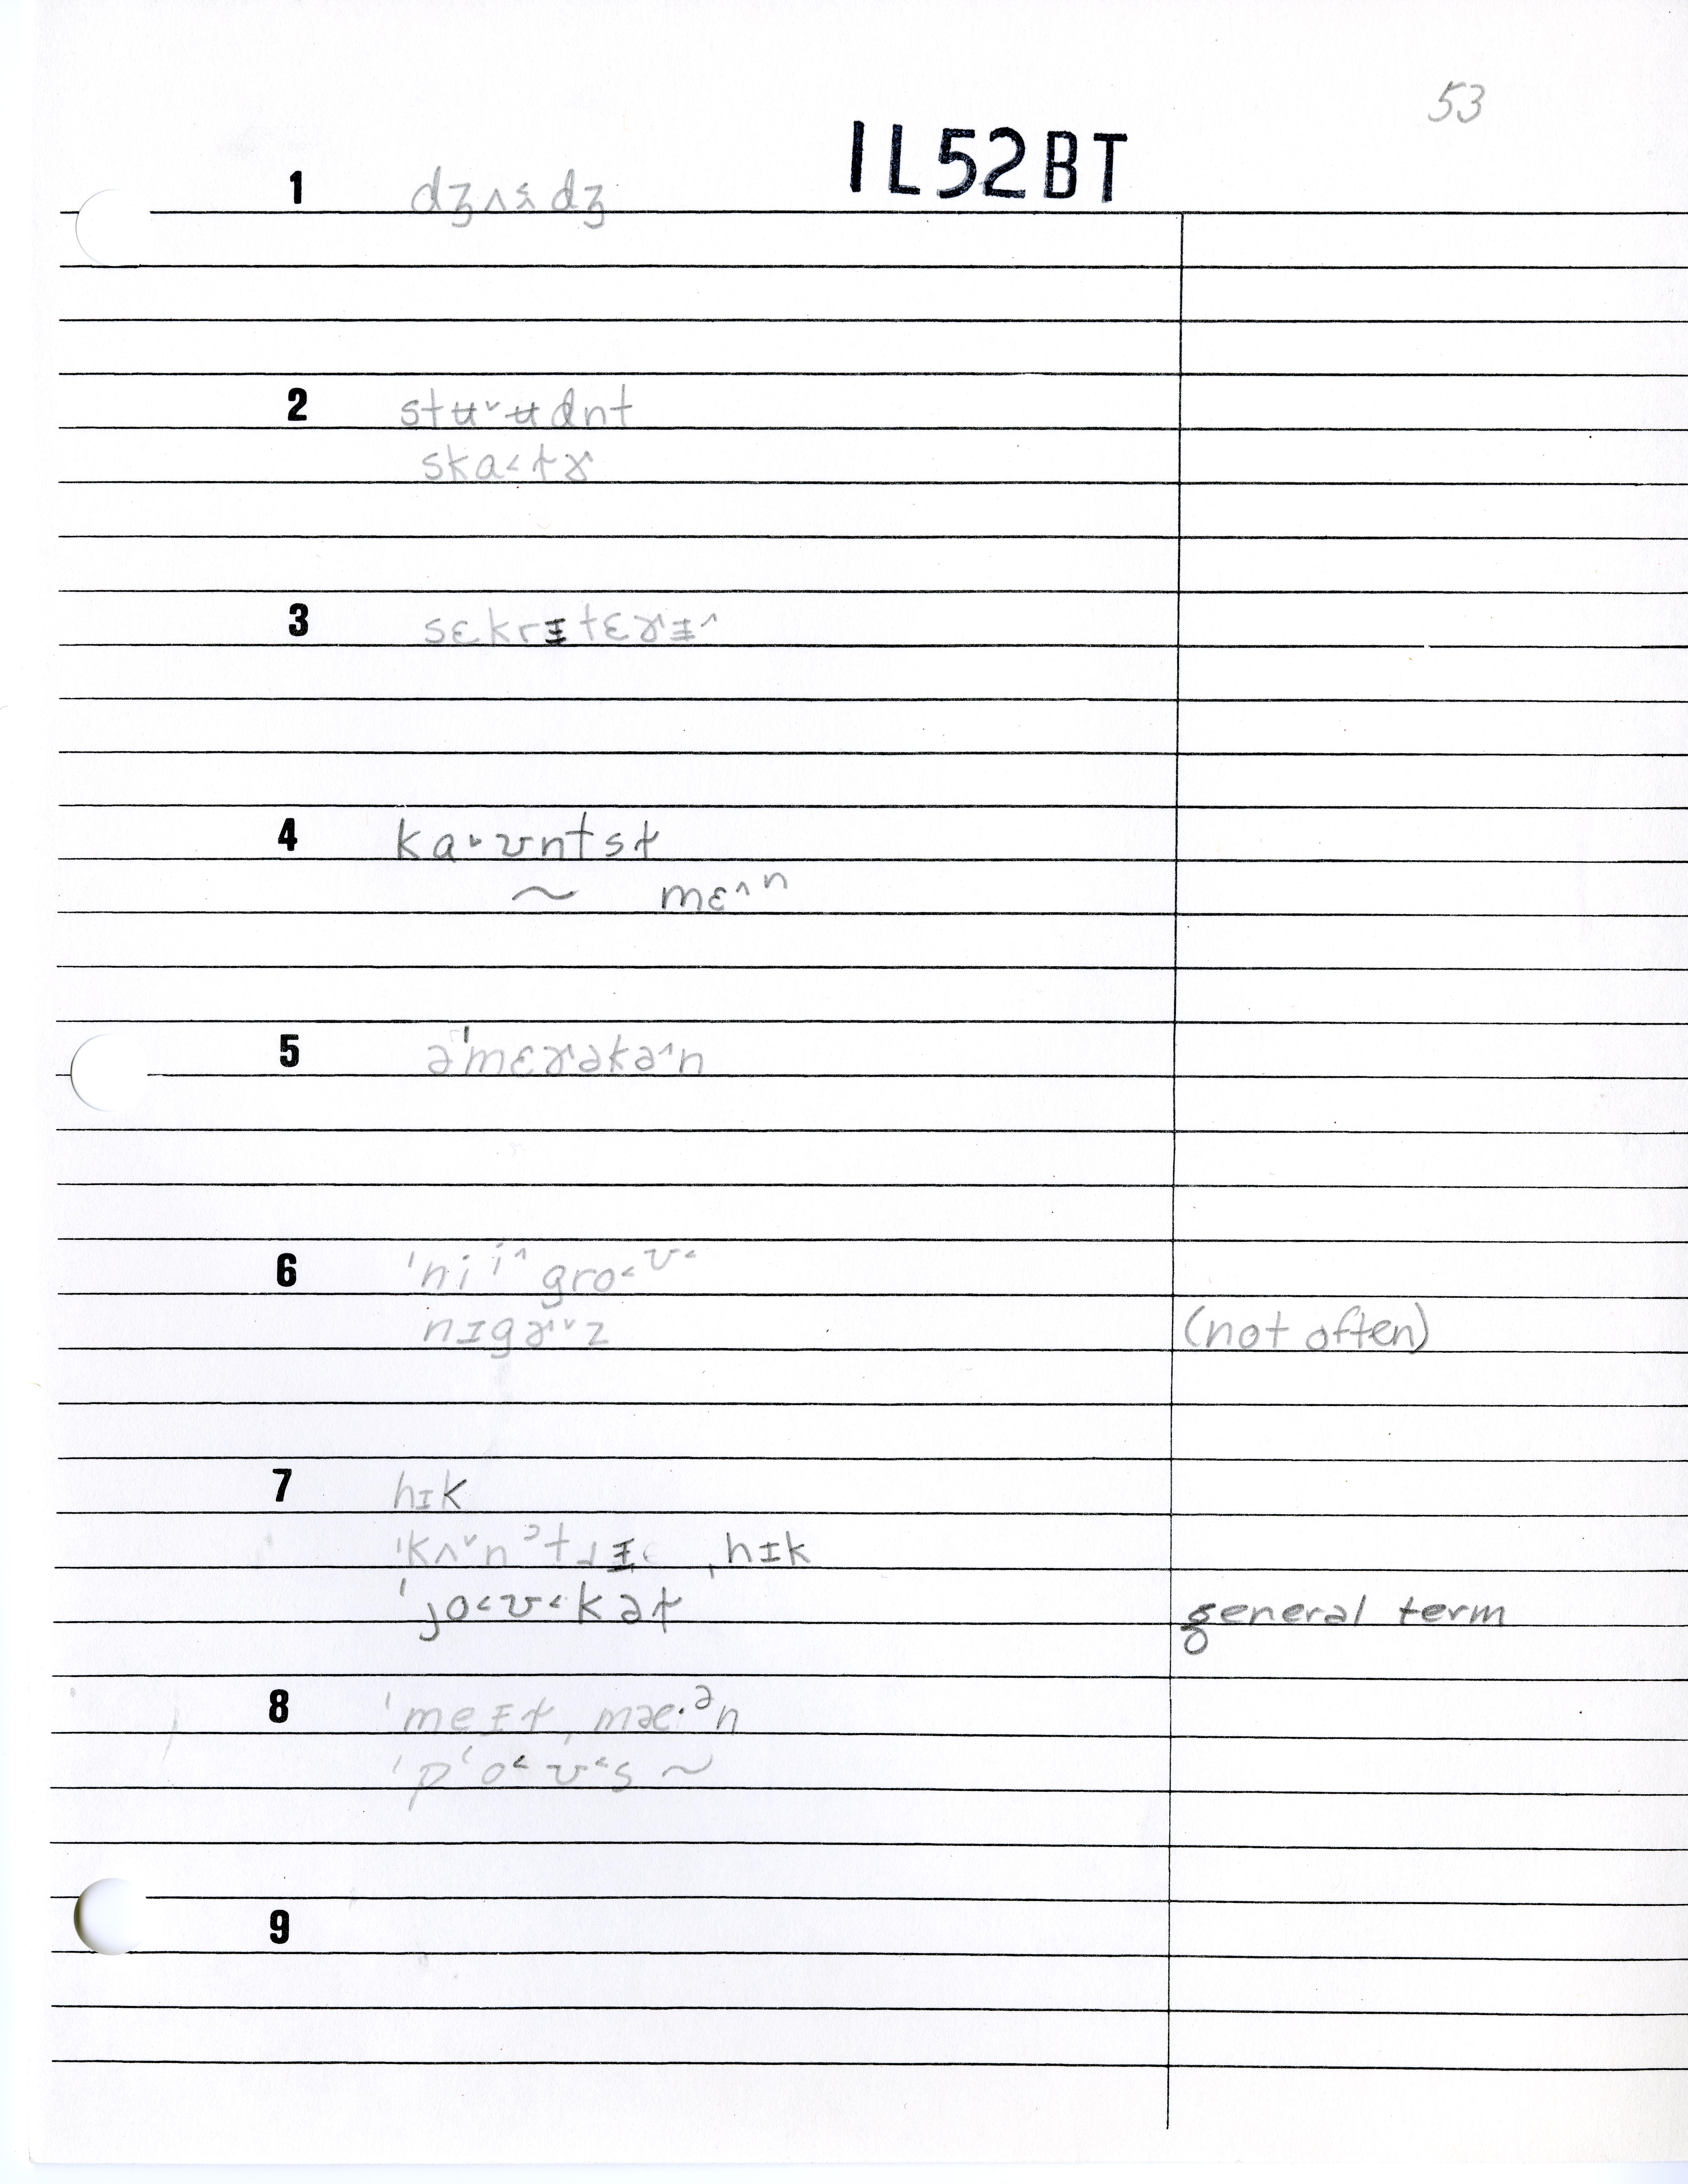 53
1L52BT
1 dʒʌᵻdʒ
2 stʉ˅ʉdnt
skɑ˂ɫɚ
3 sɛkrᵻtɛɚᵻ˄
4 kɑ˞ʊntsɫ
~ mɛ˄ⁿ
5 əˈmɛɚəkə˄n
6 ˈniⁱ˄gro˂ᶷ˂
nɪgɚ˅z (not often)
7 hɪk
ˈkʌ˅nᵊtɹᵻ˂ ˌhɪk
ˈjo˂ʊ˂kəɫ general term
8 ˈmeɪɫˌmæ·ᵊn
ˈpʻo˂ʊ˂s ~
9